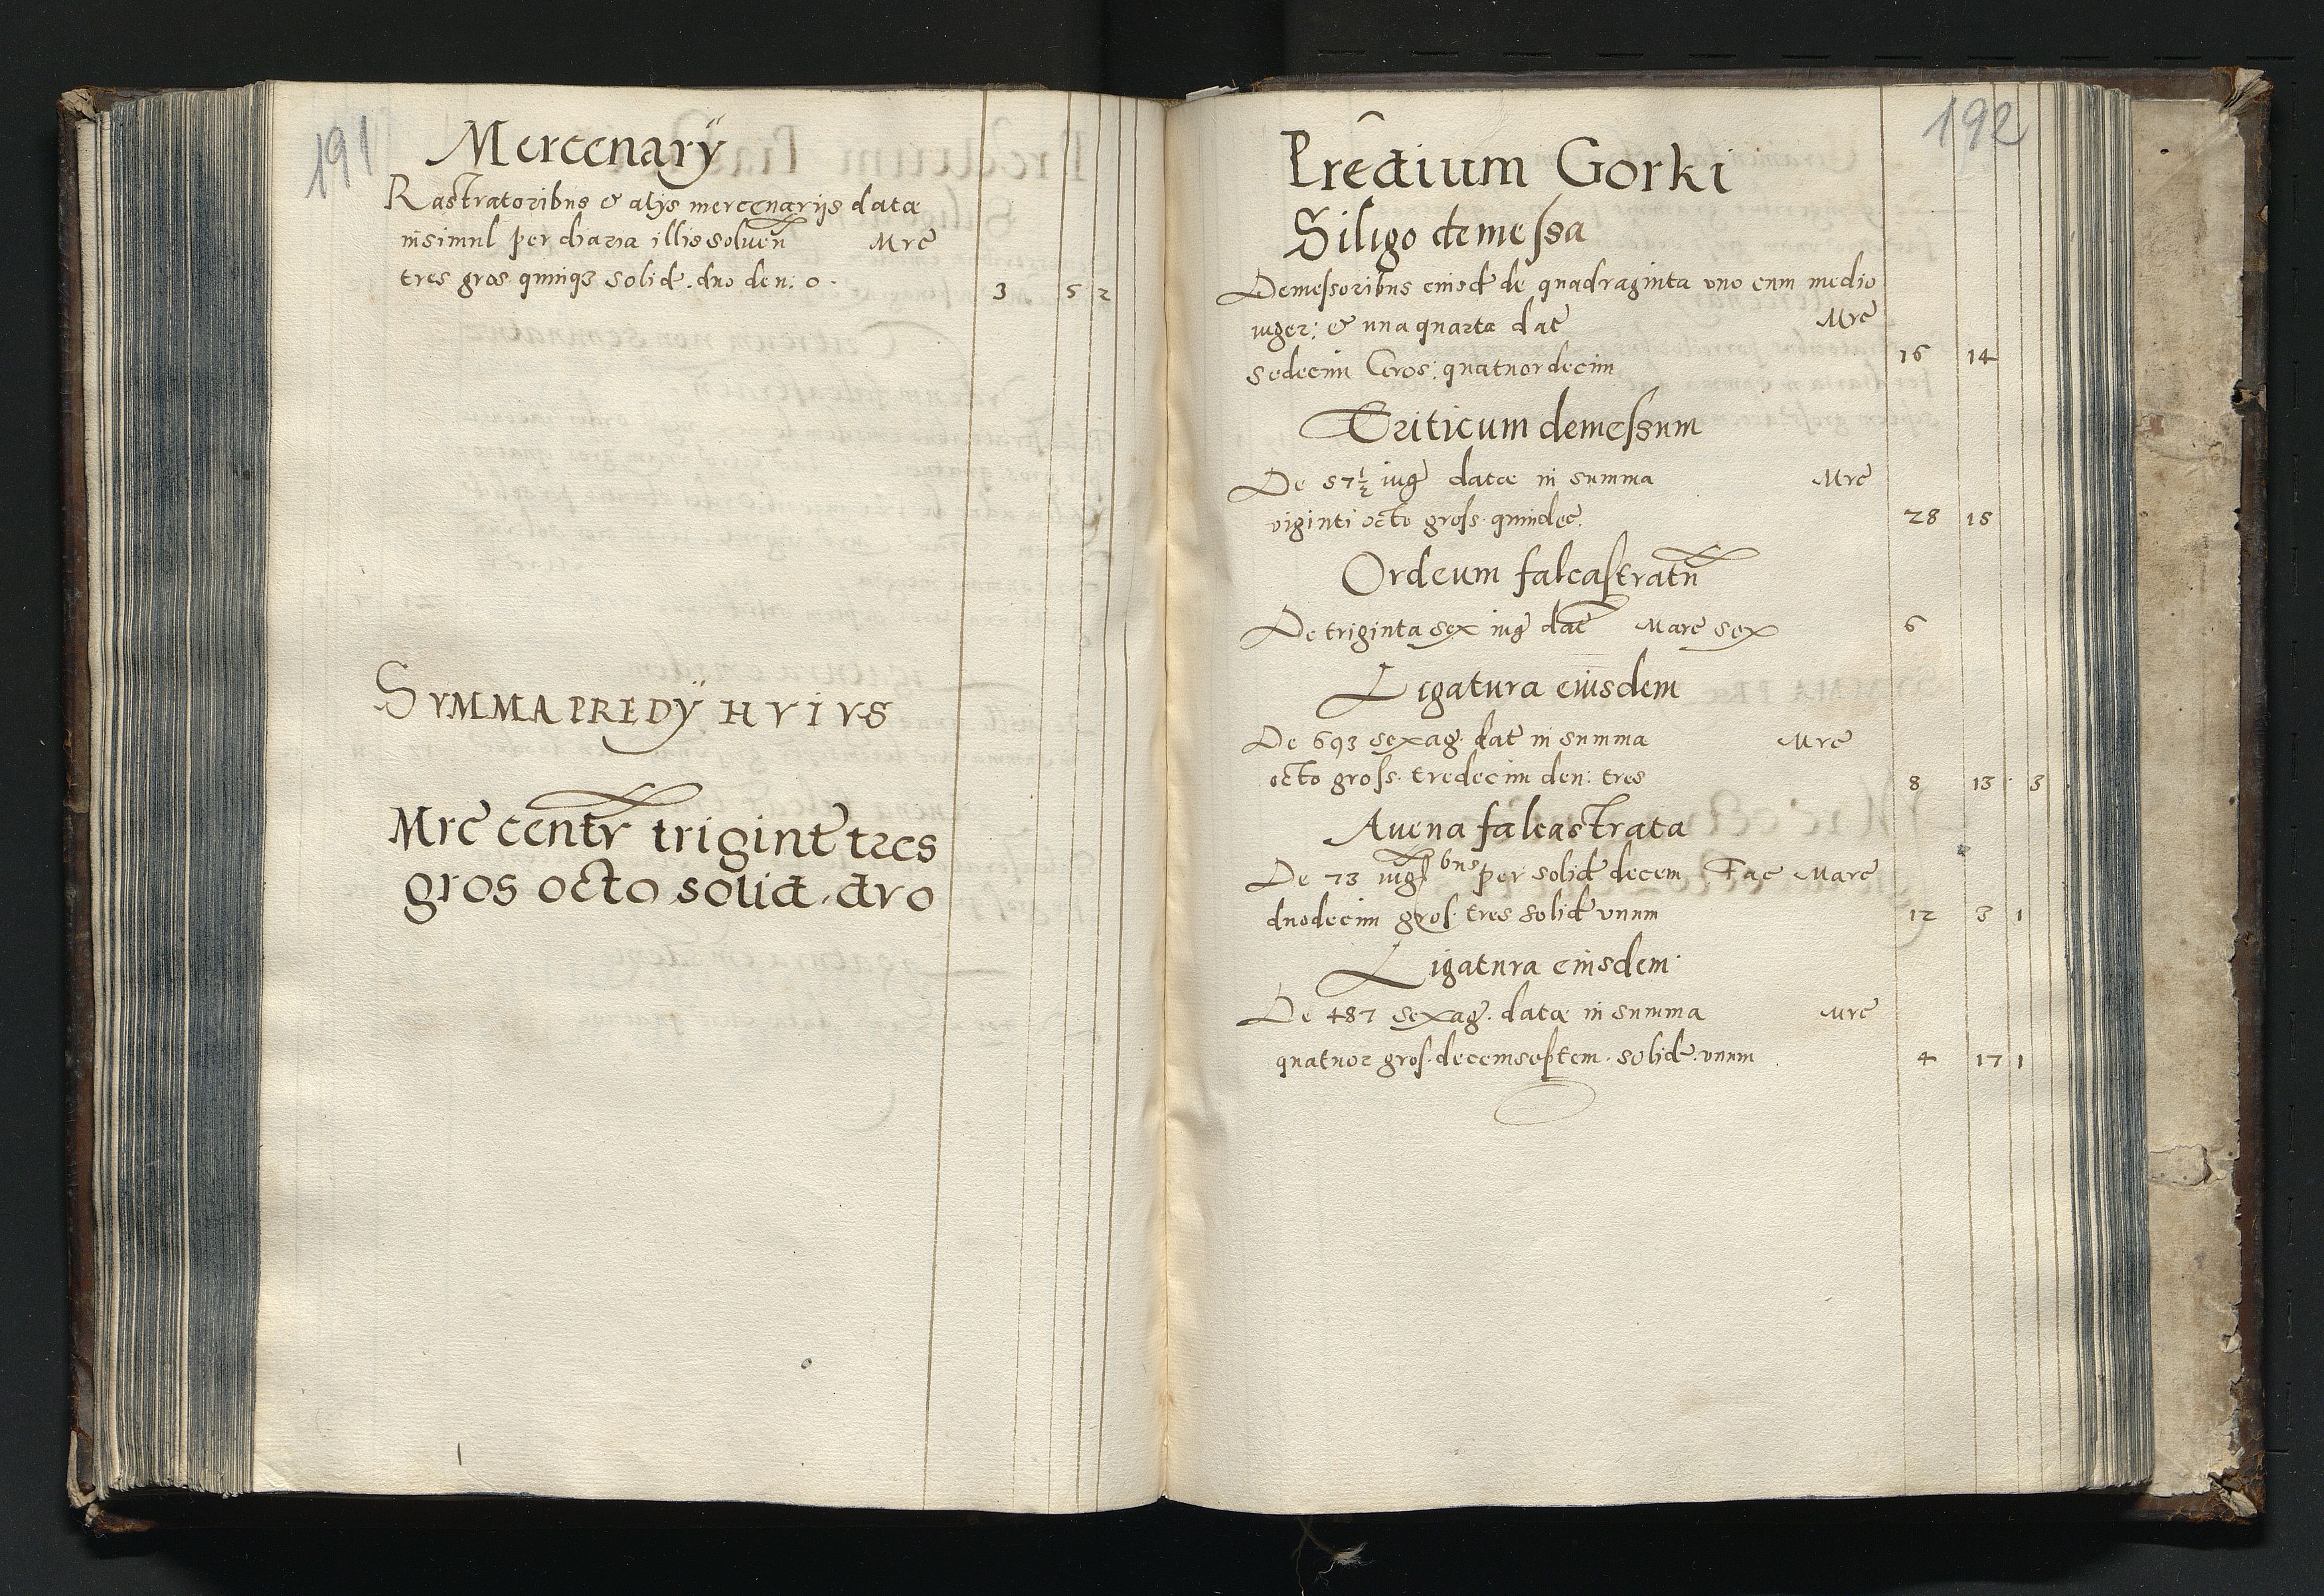 191
Mercenarÿ
Rastratoribus & alijs mercenarijs datæ
insimul per diaria illis soluen̄ Mrc̄
tres gros. quinqȝ solid̄. duo den: 0. 3 5 2
SVMMA PREDŸ HVIVS
Mrc̄ centv̄ trigint̄ tres
gros octo solid̄. dvo
192
Prēdium Gorki
Siligo demessa
Demessoribus eiusd̄ de quadraginta vno cum medio
iuger: & una quarta dat̄ Mrc̄
sedecim Gros: quatuordecim 16 14
Triticum demessum
De 57½ iuḡ datæ in summa Mrc̄
viginti octo gross. quindec̄. 28 15
Ordeum falcastratū
De triginta sex iuḡ dat̄ Marc̄ sex 6
Ligatura eiusdem
De 693 sexaḡ. dat̄ in summa Mrc̄
octo gross. tredecim den: tres 8 13 3
Auena falcastrata
De 73 iugr̄bus per solid̄ decem Fac̄ Marc̄
duodecim gros. tres solid̄ vnum 12 3 1
Ligatura eiusdem.
De 487 sexaḡ. datæ in summa Mrc̄
quatuor gros. decemseptem. solid̄. vnum 4 17 1